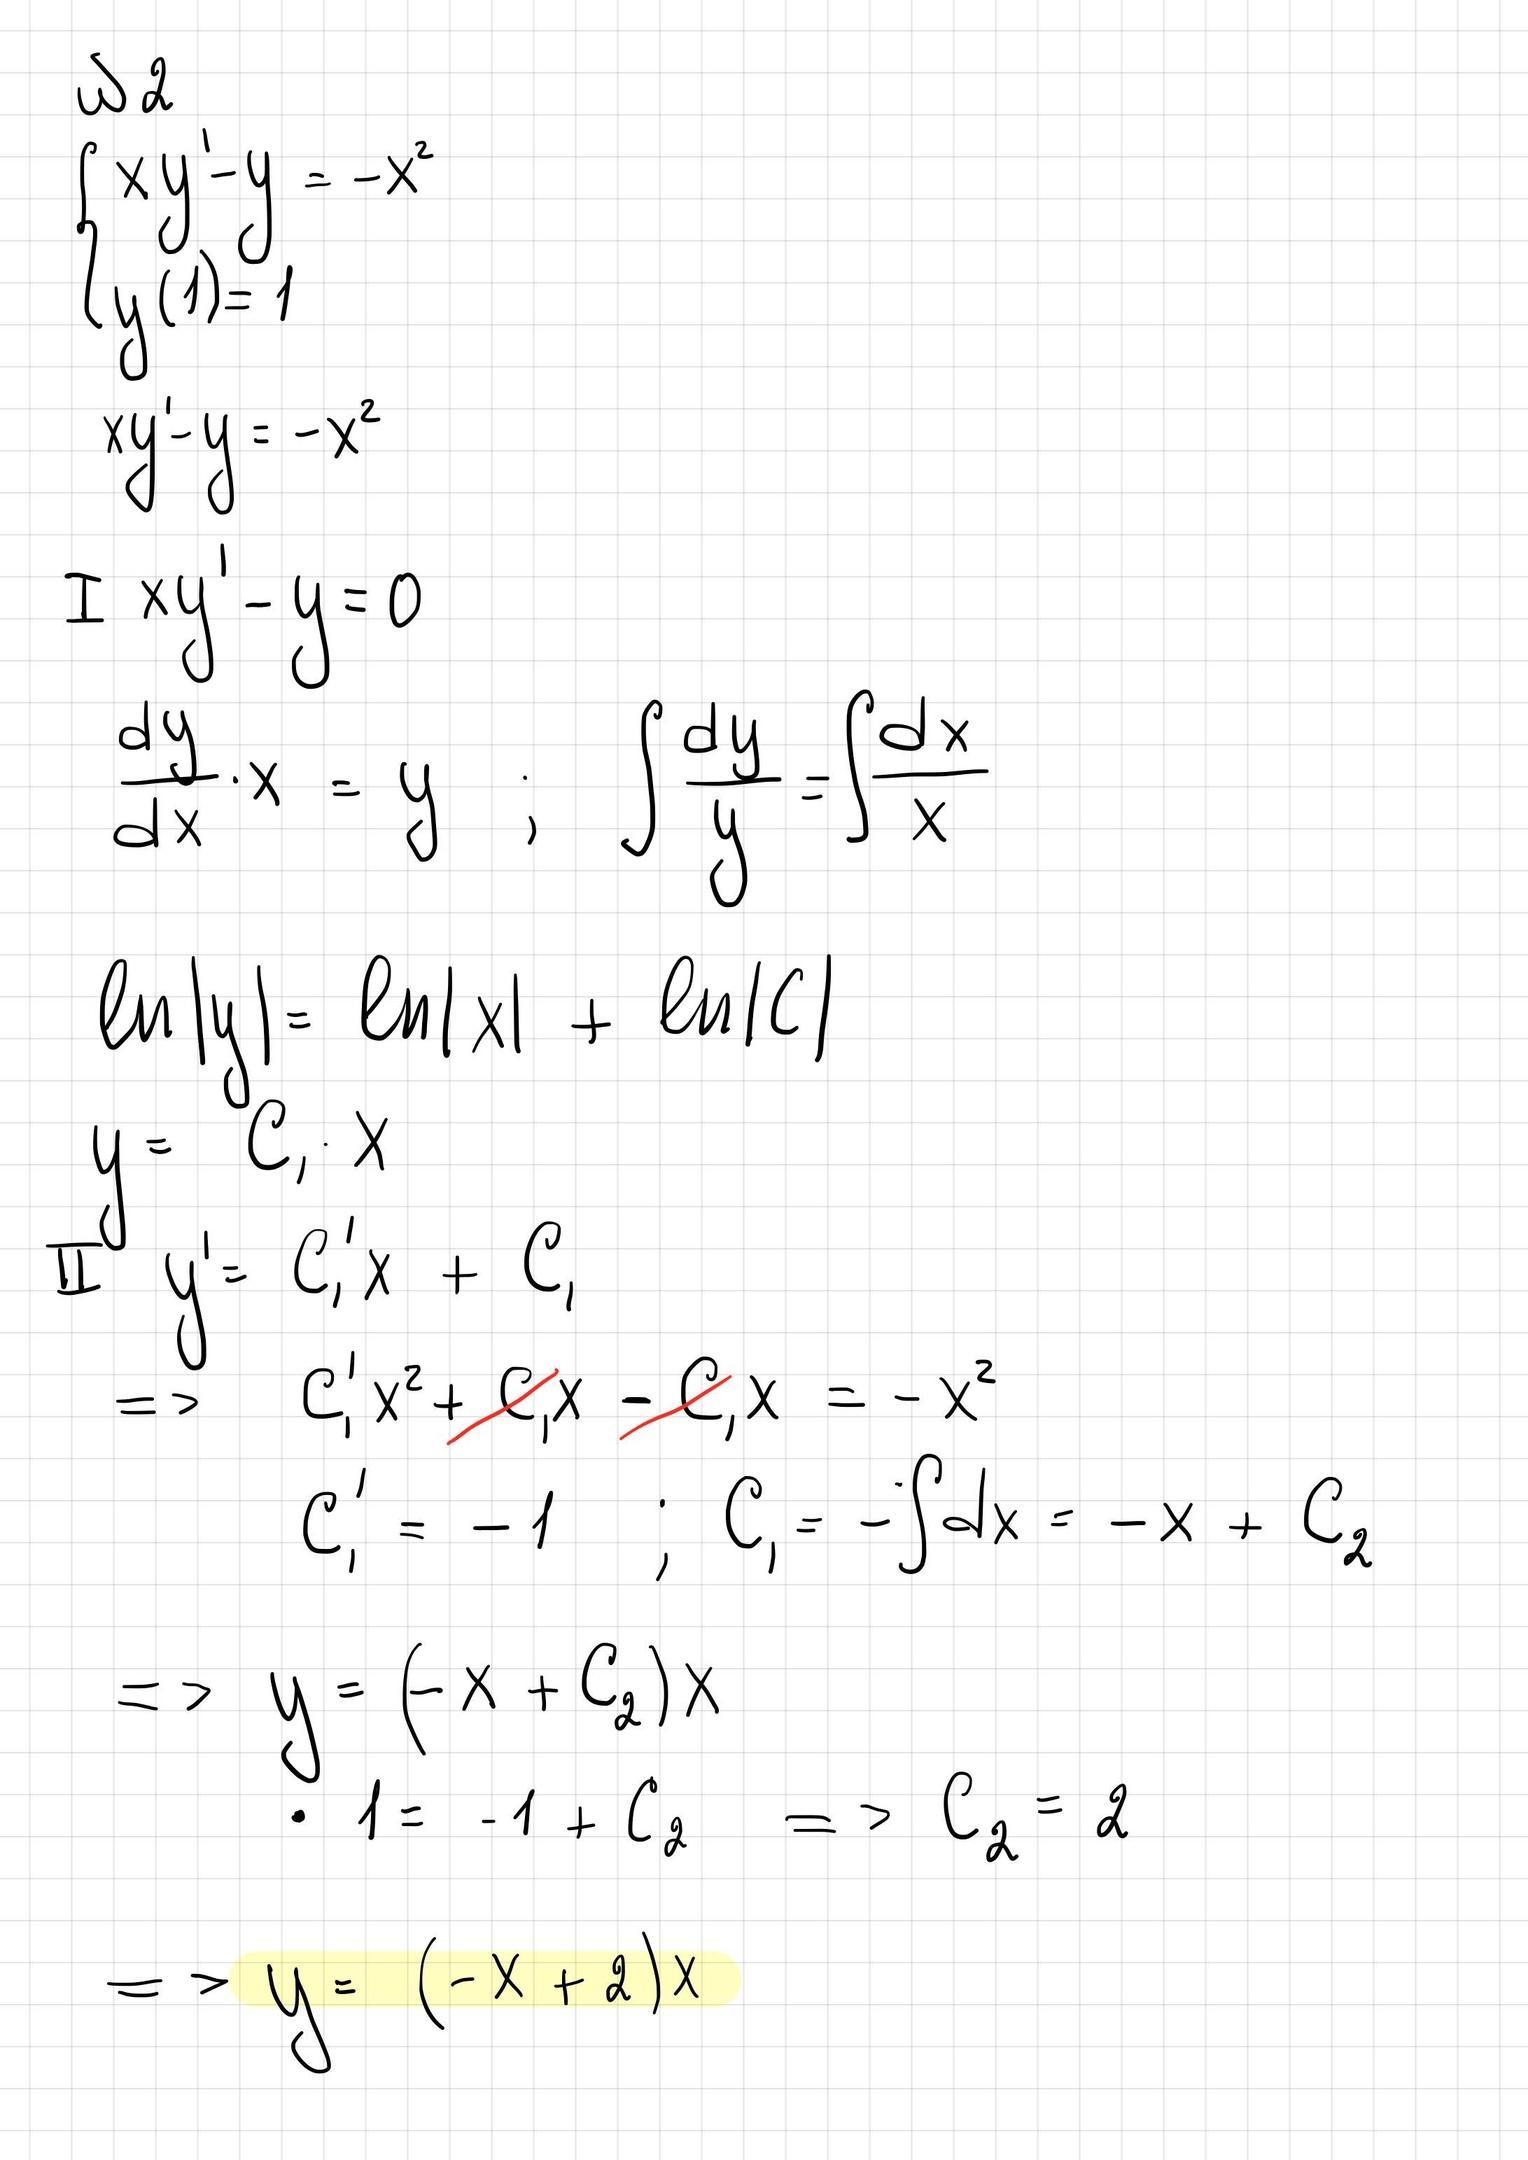 №2
{ xy' - y = -x²
y(1) = 1
xy' - y = -x²
I xy' - y = 0
dy/dx · x = y ; ∫ dy/y = ∫ dx/x
ln|y| = ln|x| + ln|C|
y = C₁ · x
II y' = C₁'x + C₁
=> C₁'x² + C₁x - C₁x = -x²
C₁' = -1 ; C₁ = -∫dx = -x + C₂
=> y = (-x + C₂)x
· 1 = -1 + C₂ => C₂ = 2
=> y = (-x + 2)x